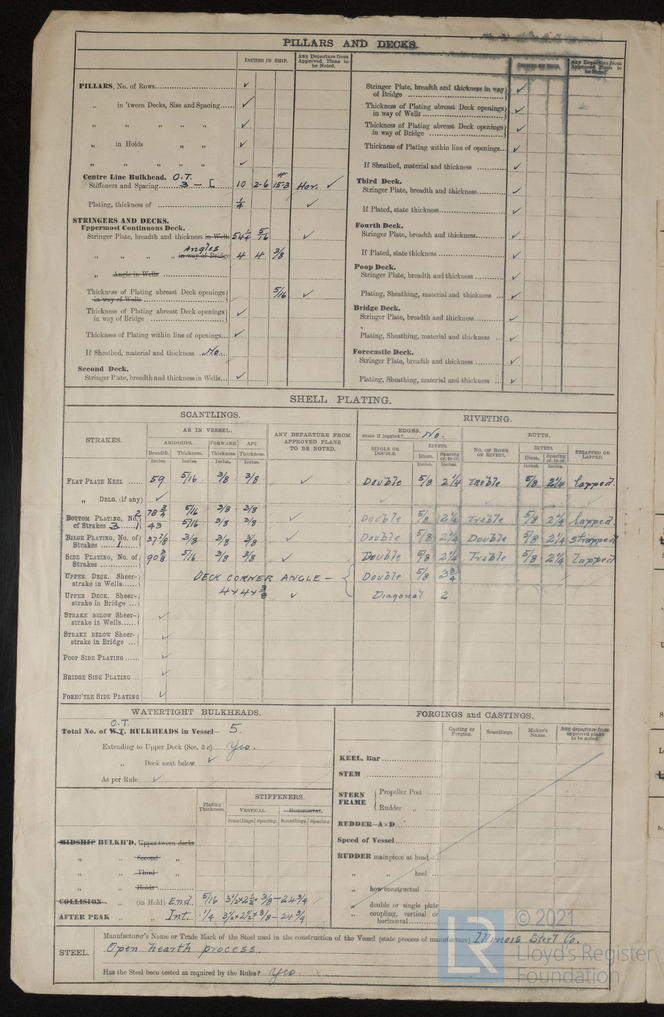 PILLARS AND DECKS.
INCHES IN SHIP.
Any Departure from Approved Plans to be Noted.
PILLARS, No. of Rows ✓
„ in 'tween Decks, Size and Spacing ✓
„ „ „ „ ✓
„ in Holds „ „ ✓
„ „ „ „ ✓
Centre Line Bulkhead. O.T.
Stiffeners and Spacing 3 - [ 10 2·6 15·3 # Hor. ✓
Plating, thickness of 1/4 ✓
STRINGERS AND DECKS.
Uppermost Continuous Deck.
Stringer Plate, breadth and thickness in Wells 54 1/4 5/16 ✓
„ „ „ Angles in way of Bridge 4 4 3/8
„ Angle in Wells
Thickness of Plating abreast Deck openings in way of Wells 5/16 ✓
Thickness of Plating abreast Deck openings in way of Bridge ✓
Thickness of Plating within line of openings ✓
If Sheathed, material and thickness No.
Second Deck.
Stringer Plate, breadth and thickness in Wells ✓
Stringer Plate, breadth and thickness in way of Bridge ✓
Thickness of Plating abreast Deck openings in way of Wells ✓
Thickness of Plating abreast Deck openings in way of Bridge ✓
Thickness of Plating within line of openings ✓
If Sheathed, material and thickness ✓
Third Deck.
Stringer Plate, breadth and thickness ✓
If Plated, state thickness ✓
Fourth Deck.
Stringer Plate, breadth and thickness ✓
If Plated, state thickness ✓
Poop Deck.
Stringer Plate, breadth and thickness ✓
Plating, Sheathing, material and thickness ✓
Bridge Deck.
Stringer Plate, breadth and thickness ✓
Plating, Sheathing, material and thickness ✓
Forecastle Deck.
Stringer Plate, breadth and thickness ✓
Plating, Sheathing, material and thickness ✓
SHELL PLATING.
SCANTLINGS.
RIVETING.
STRAKES.
AS IN VESSEL.
AMIDSHIPS. FORWARD. AFT.
Breadth. Thickness. Thickness. Thickness.
Inches. Inches. Inches. Inches.
ANY DEPARTURE FROM APPROVED PLANS TO BE NOTED.
EDGES.
State if joggled? No.
SINGLE OR DOUBLE.
RIVETS.
Diam. Spacing cr. to cr.
Inches. Inches.
BUTTS.
NO. OF ROWS OF RIVETS.
RIVETS.
Diam. Spacing cr. to cr.
Inches. Inches.
STRAPPED OR LAPPED.
FLAT PLATE KEEL 59 5/16 3/8 3/8 ✓ Double 5/8 2 1/4 Treble 5/8 2 1/4 Lapped
„ DBLG. (if any) ✓
BOTTOM PLATING, No. of Strakes 3 2 78 3/4 5/16 3/8 3/8
1 43 5/16 3/8 3/8 ✓ Double 5/8 2 1/4 Treble 5/8 2 1/4 Lapped
BILGE PLATING, No. of Strakes 1 37 1/8 3/8 3/8 3/8 ✓ Double 5/8 2 1/4 Double 5/8 2 1/4 Strapped
SIDE PLATING, No. of Strakes 90 3/8 5/16 3/8 3/8 ✓ Double 5/8 2 1/4 Treble 5/8 2 1/4 Lapped
UPPER DECK, Sheer-strake in Wells DECK CORNER ANGLE - Double 5/8 3 3/4
UPPER DECK, Sheer-strake in Bridge 4 x 4 x 3/8 ✓ Diagonal 2
STRAKE BELOW Sheer-strake in Wells ✓
STRAKE BELOW Sheer-strake in Bridge ✓
POOP SIDE PLATING ✓
BRIDGE SIDE PLATING ✓
FORE'C'TLE SIDE PLATING ✓
WATERTIGHT BULKHEADS.
Total No. of W.T. O.T. BULKHEADS in Vessel- 5.
Extending to Upper Deck (Sec. 3 c) Yes.
„ Deck next below ✓
As per Rule ✓
Plating Thickness.
STIFFENERS.
VERTICAL. HORIZONTAL.
Scantlings. Spacing. Scantlings. Spacing.
MIDSHIP BULK'D, Upper tween decks
„ „ Second „
„ „ Third „
„ „ Holds
COLLISION „ (in Hold) End. 5/16 3 1/2 x 2 1/2 x 3/8 - 24 3/4
AFTER PEAK „ „ Int. 1/4 3 1/2 x 2 1/2 x 3/8 - 24 3/4
FORGINGS and CASTINGS.
Casting or Forging. Scantlings. Maker's Name. Any departure from approved plans to be noted.
KEEL, Bar
STEM
STERN FRAME { Propeller Post
Rudder „
RUDDER-A×D
Speed of Vessel
RUDDER mainpiece at head
„ „ heel
„ how constructed
„ double or single plate
„ coupling, vertical or horizontal
STEEL. Manufacturer's Name or Trade Mark of the Steel used in the construction of the Vessel (state process of manufacture) Illinois Steel Co.
Open hearth process.
Has the Steel been tested as required by the Rules? Yes.
LR
© 2021
Lloyd's Register
Foundation